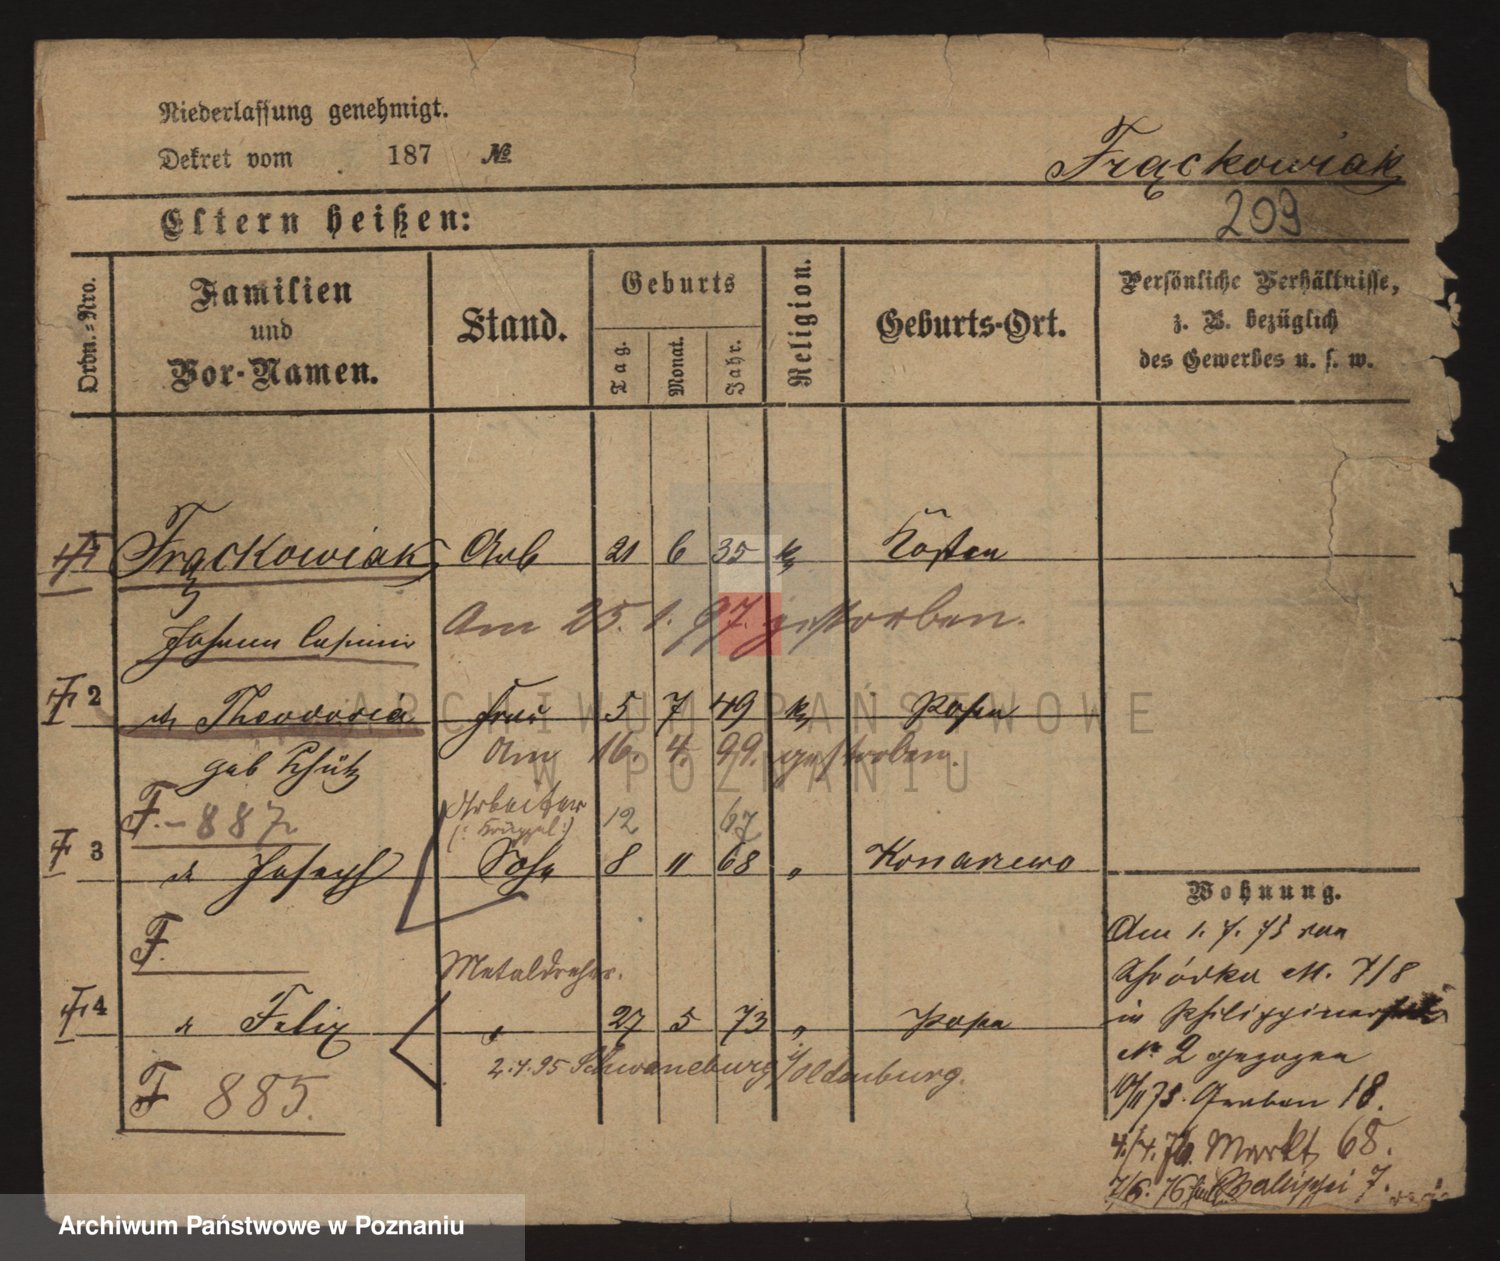 Niederlassung genehmigt.
Dekret vom 187 №
Frąckowiak
209
Eltern heißen:
Ordn.-Nro.
Familien
und
Vor-Namen.
Stand.
Geburts
Tag.
Monat.
Jahr.
Religion.
Geburts-Ort.
Persönliche Verhältnisse,
z. B. bezüglich
des Gewerbes u. s. w.
1 Frąckowiak Arb 21 6 35 k Kosten
Johann Casimir
Am 25. 1. 97. gestorben.
2 Theodosia Frau 5 7 49 k Posen
geb Schütz
Am 16. 4. 99. gestorben.
F. - 887
Arbeiter 12 67
(: Krüppel :)
3 Joseph Sohn 8 11 68 " Konarzewo
F.
Metaldreher.
4 Felix " 27 5 73 " Posen
2.4.95 Schwaneburg i/Oldenburg.
F 885.
Wohnung.
Am 1. 7. 75 von
Schrodka N. 7/8
in Philippiner
№ 2 gezogen
75. Graben 18.
4./4. 76. Markt 68.
7/6. 76 Wallischei 7.
ARCHIWUM PAŃSTWOWE
W POZNANIU
Archiwum Państwowe w Poznaniu